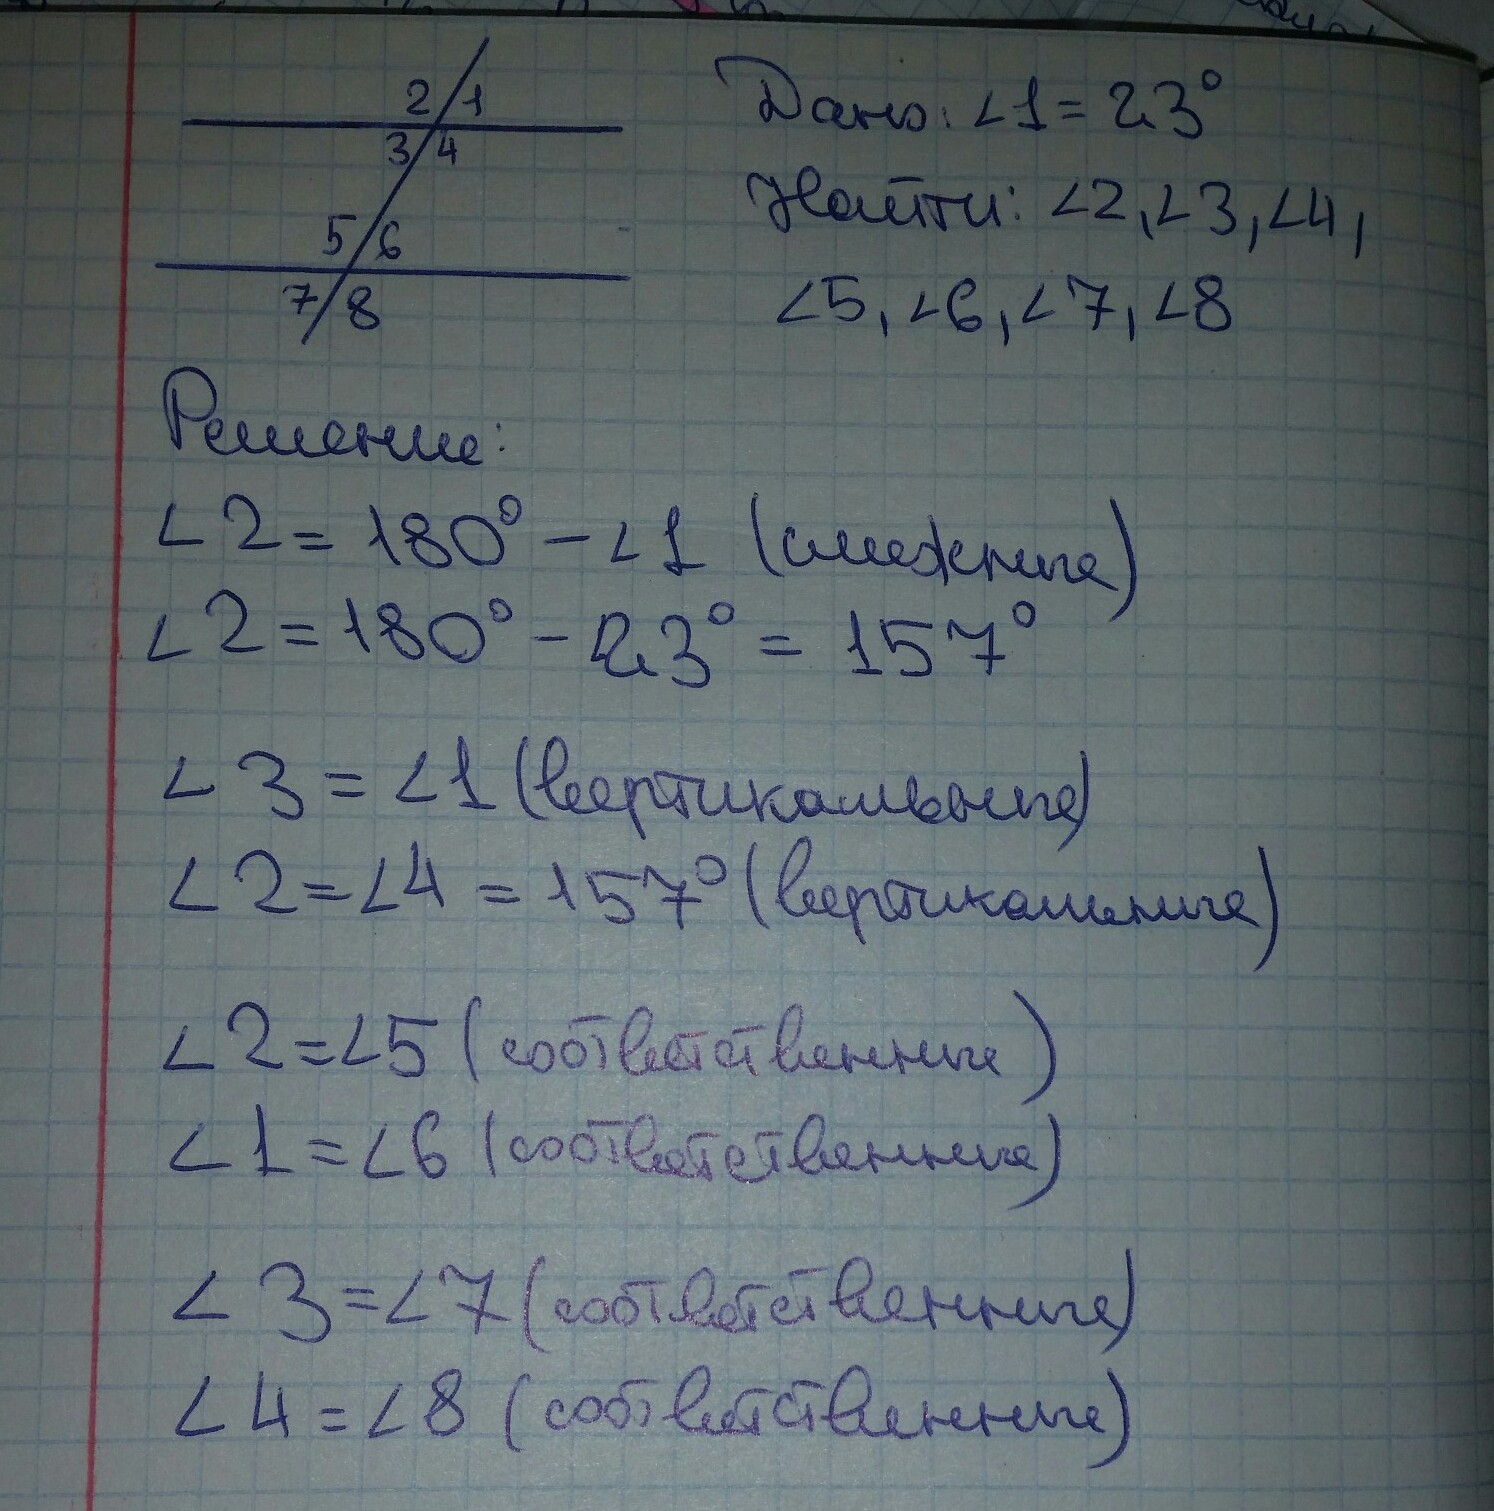 2 1
3 4
5 6
7 8
Дано: ∠1 = 23°
Найти: ∠2, ∠3, ∠4,
∠5, ∠6, ∠7, ∠8
Решение:
∠2 = 180° - ∠1 (смежные)
∠2 = 180° - 23° = 157°
∠3 = ∠1 (вертикальные)
∠2 = ∠4 = 157° (вертикальные)
∠2 = ∠5 (соответственные)
∠1 = ∠6 (соответственные)
∠3 = ∠7 (соответственные)
∠4 = ∠8 (соответственные)